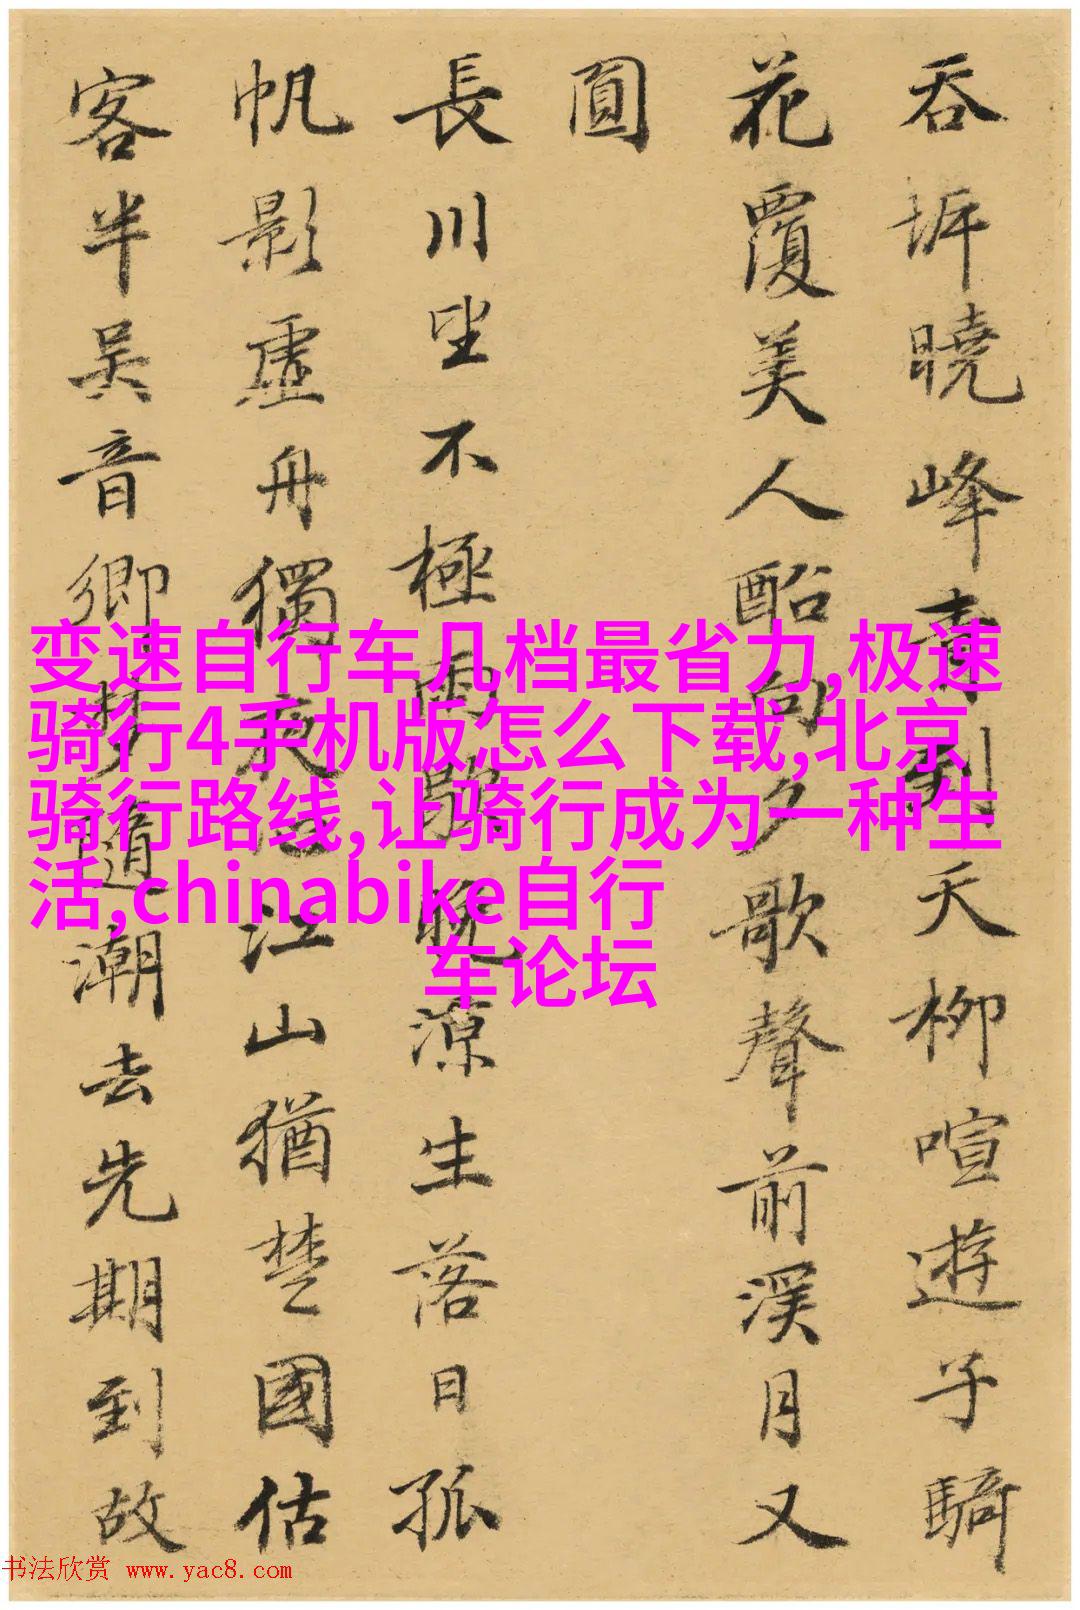 吞坼曉峰青
削天柳喧遊子騎
花覆美人酩
句夕歌聲前渓月又
圓
長川坐不極
歇晚涼生落日孤
帆影虛舟獨夜
心江山猶楚國估
客半吴音鄉
夢隨潮去先期到故
变速自行车几档最省力,极速
骑行4手机版怎么下载,北京
骑行路线,让骑行成为一种生
活,chinabike自行
车论坛
书法欣赏 www.yac8.com